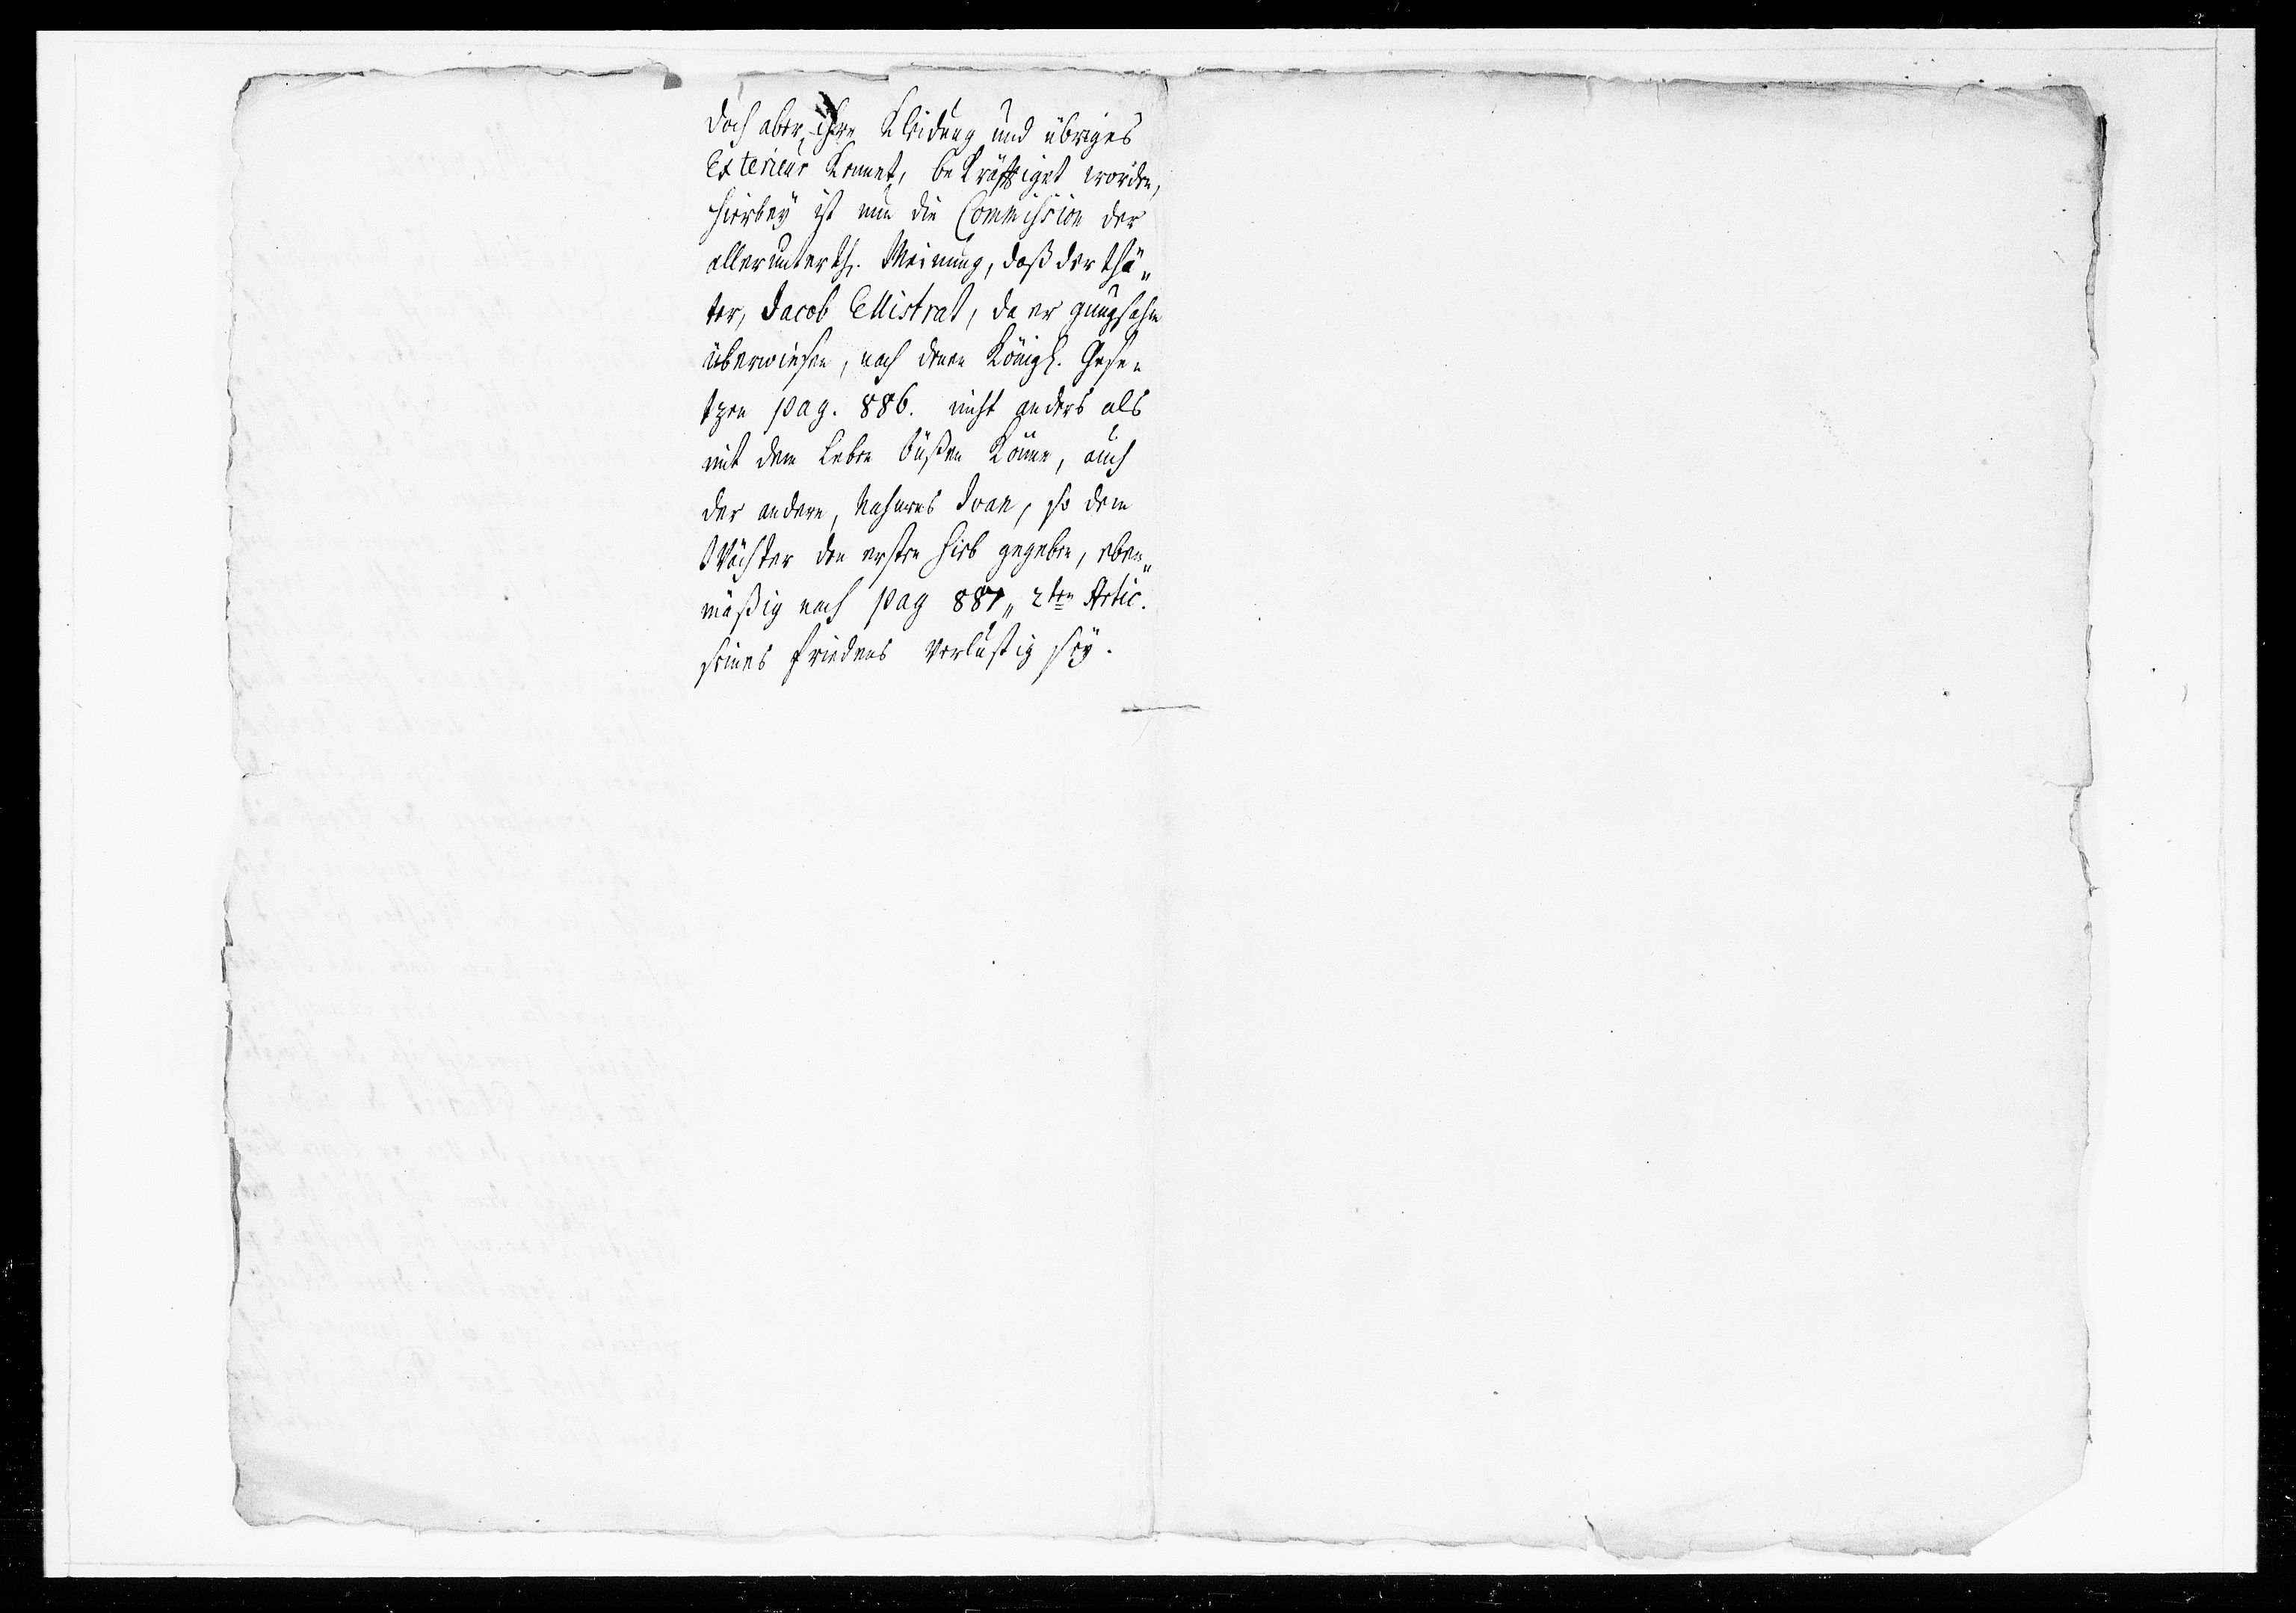 doch aber, ihre Kleidung und übriges
Exterieur kennet, bekräfftiget worden,
hierbeÿ ist nun die Commission der
allerunterth. Meinung, daß der Thä„
ter, Jacob Ellistrat, da er gnugsahm
überwiesen, nach denen Königl. Gese„
tzen pag. 886. nicht anders als
mit dem Leben büßen könne, auch
der andere, Nahmens Ivan, so dem
Wächter den ersten Hieb gegeben, eben„
mäßig nach pag 887„ 2ten Artic.
seines Friedens verlustig seÿ.